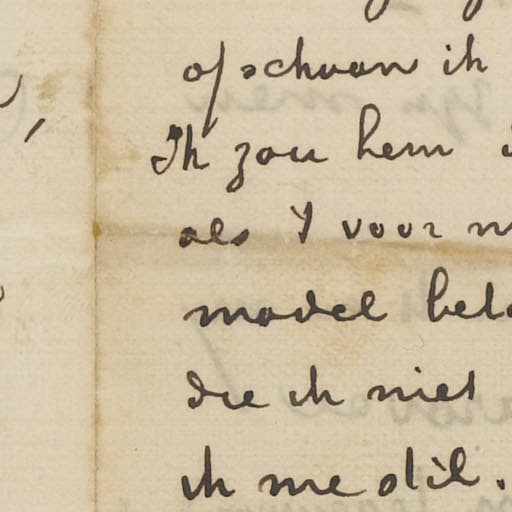 ofschoon ik
Ik zou hem
als 't voor
model
die ik niet
ik me stil.